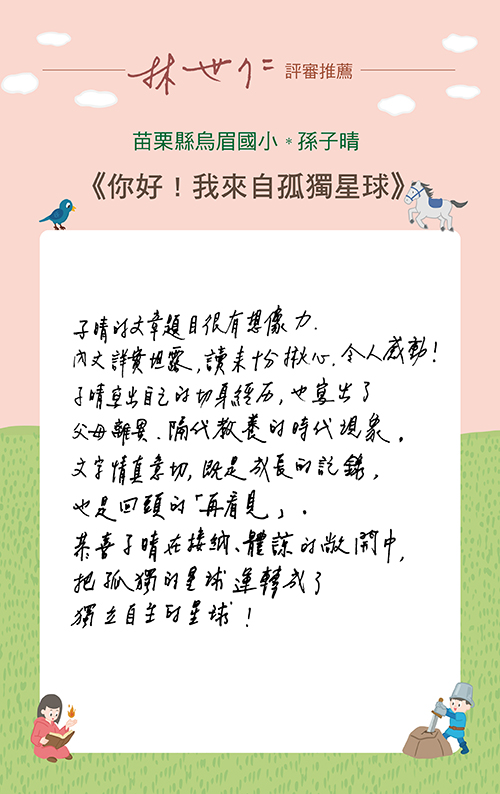 林世仁 評審推薦
苗栗縣烏眉國小*孫子晴
《你好！我來自孤獨星球》
子晴的文章題目很有想像力.
內文詳實坦露,讀來十分揪心,令人感動!
子晴寫出自己的切身經历,也寫出了
父母離異、隔代教養的時代現象。
文字情真意切,既是成長的記錄,
也是回頭的「再看見」。
恭喜子晴在接納、體諒的敞開中,
把孤獨的星球運轉成了
獨立自主的星球!